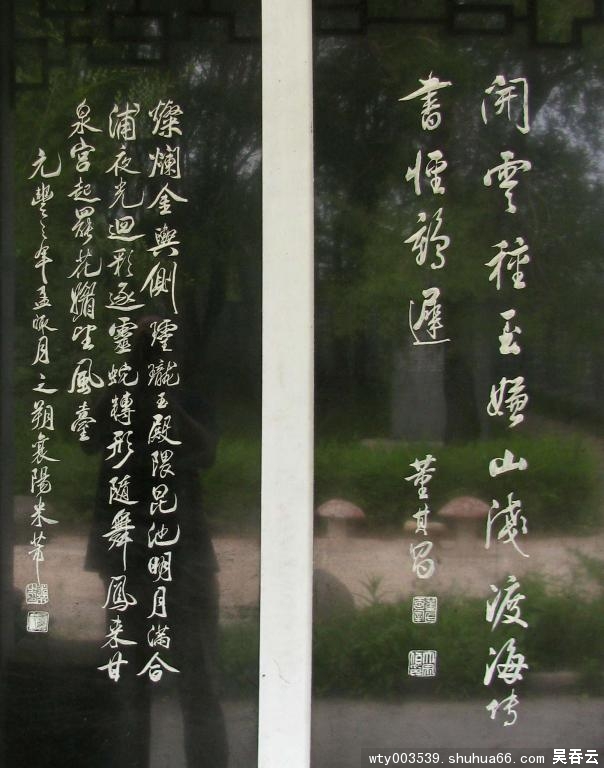 開雲種玉嫌山淺渡海傳
書怪鶴遲
董其昌
燦爛金輿側玲瓏玉殿隈昆池明月滿合
浦夜光迴彩逐靈蛇轉形隨舞鳳來甘
泉宮起罷花媚望風臺
元豐三年孟秋月之朔襄陽米芾
wty003539.shuhua66.com 吴吞云